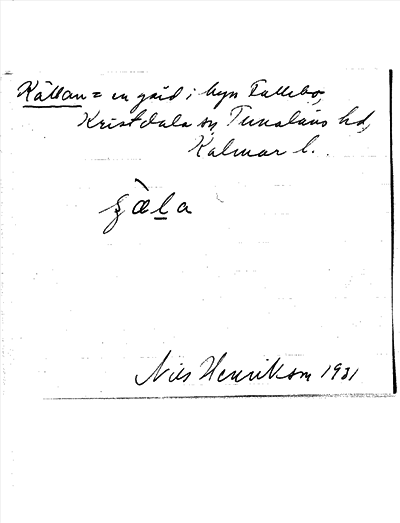 Källan = en gård i byn Fallebo,
Kristdala sn, Tunaläns hd,
Kalmar l.
Nils Henrikson 1931